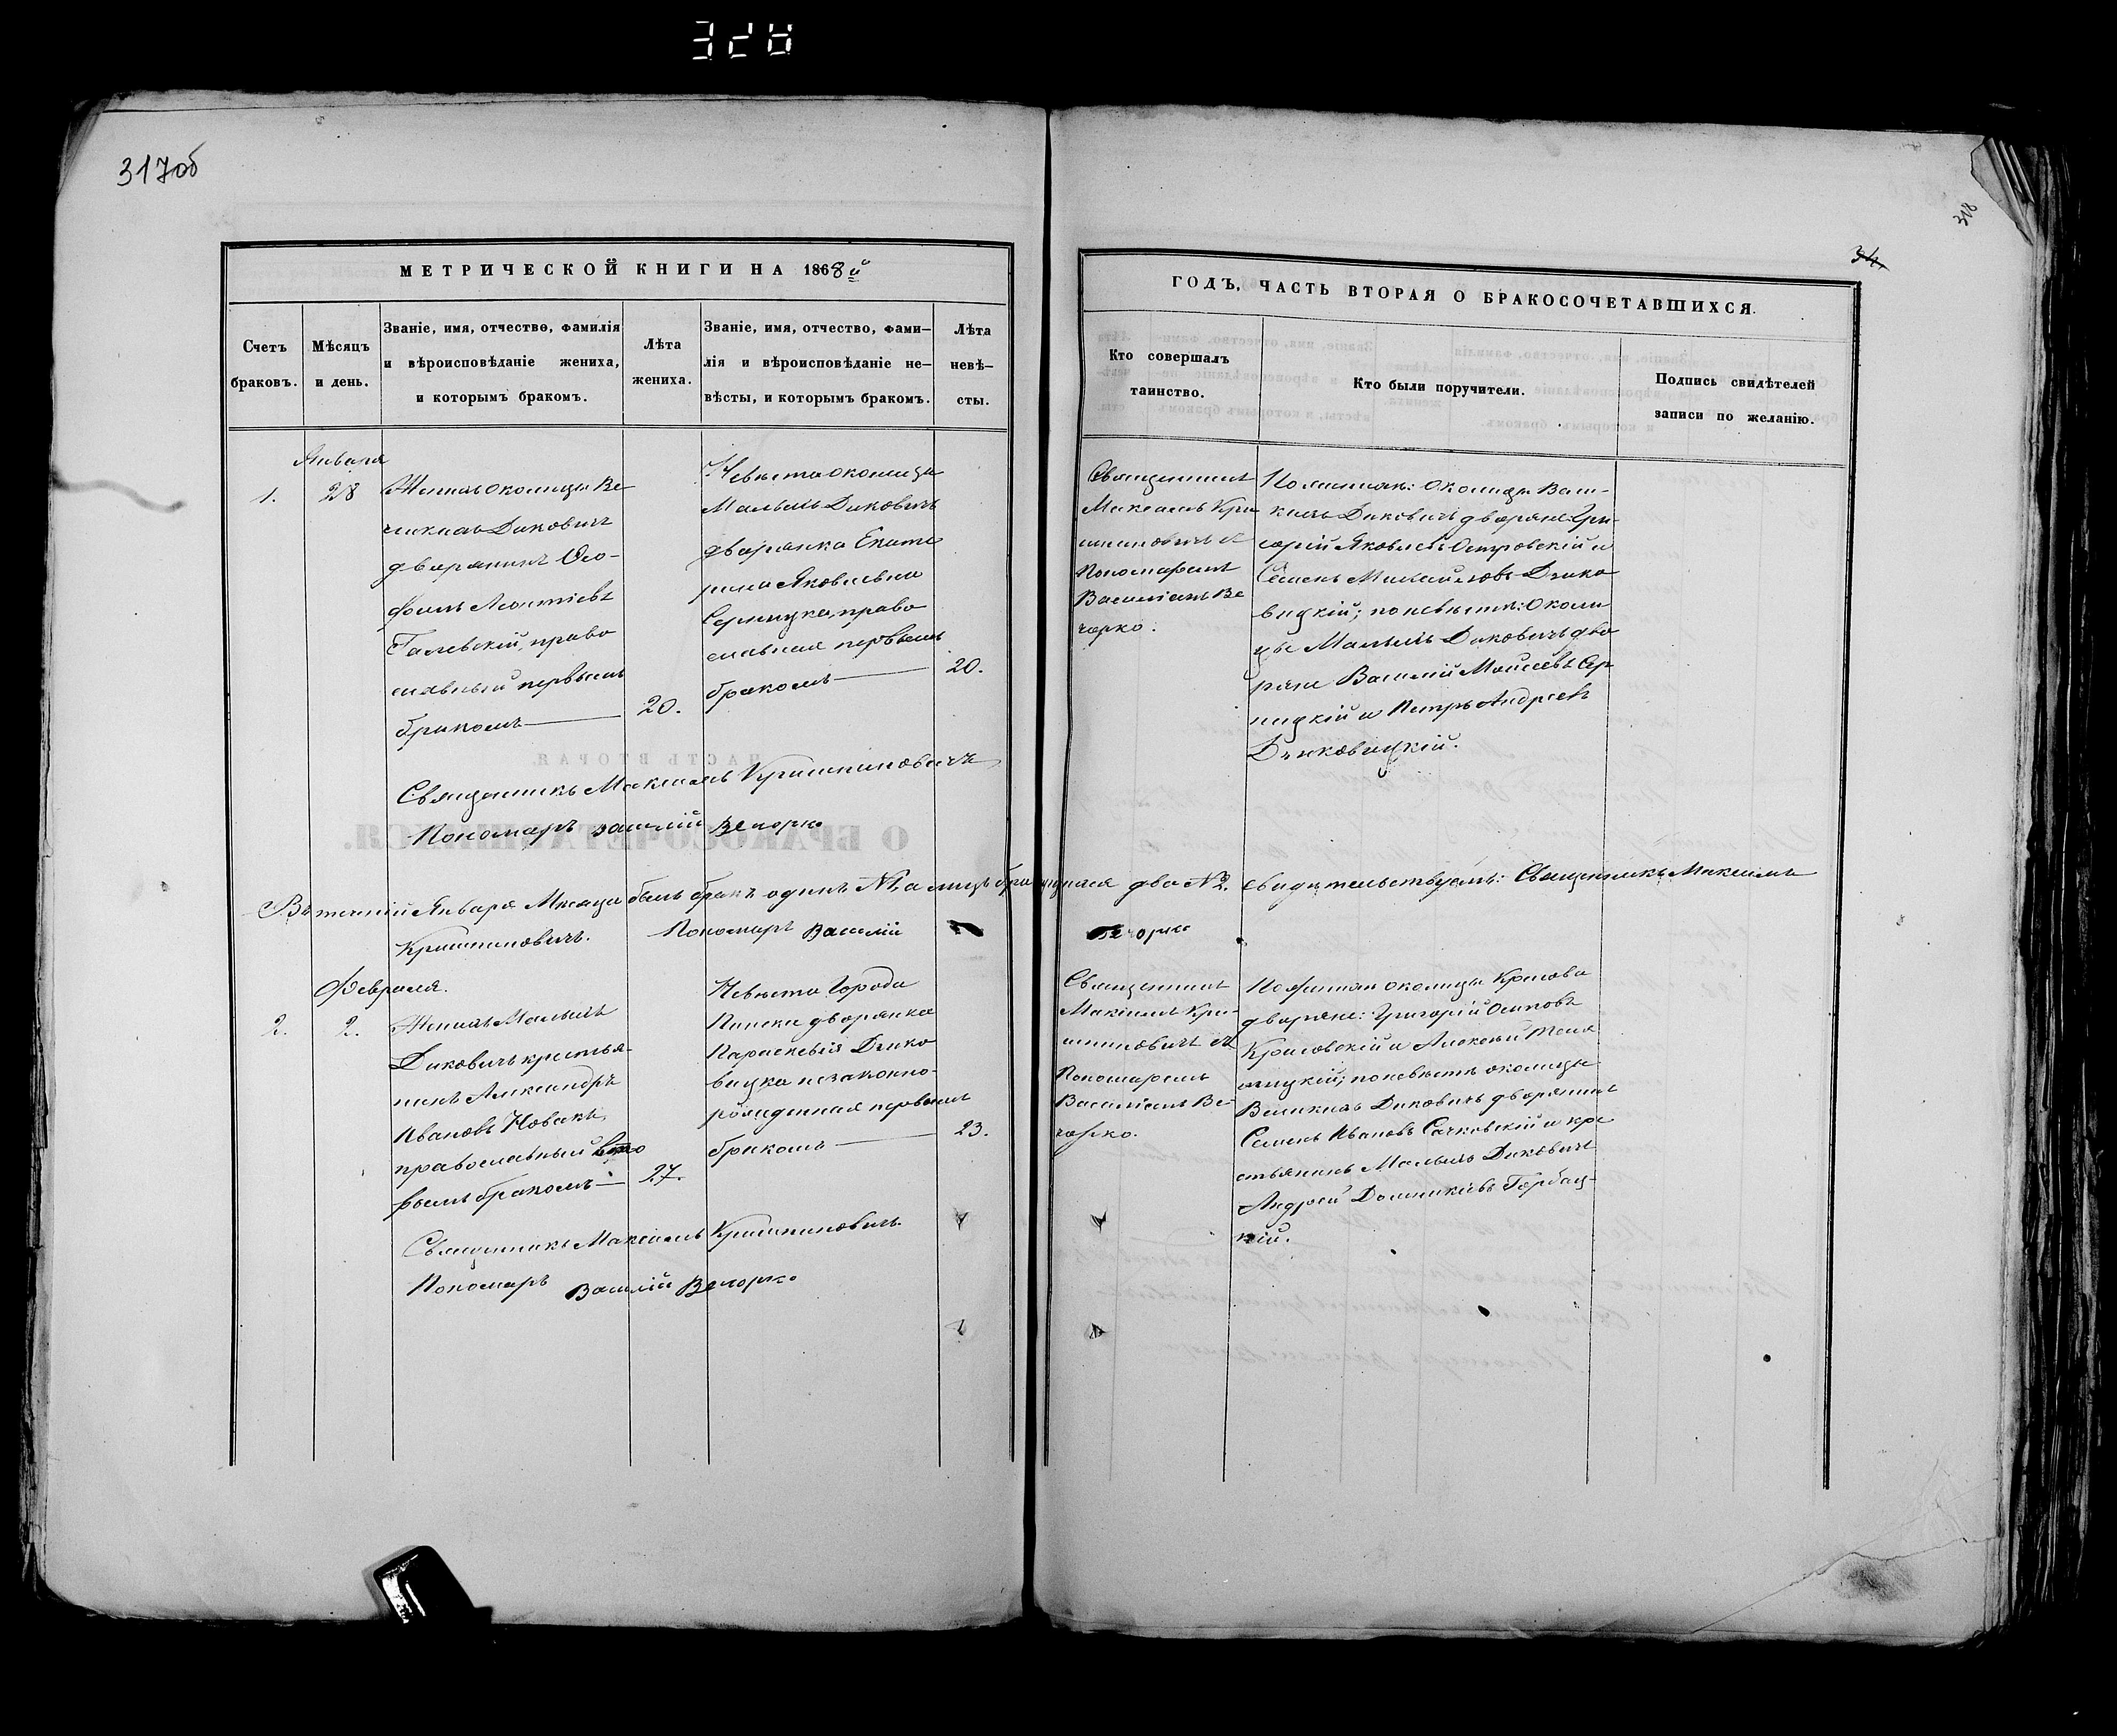 328
317об
318
34.
МЕТРИЧЕСКОЙ КНИГИ НА 1868й
ГОДЪ, ЧАСТЬ ВТОРАЯ О БРАКОСОЧЕТАВШИХСЯ.
Счетъ
браковъ.
Мѣсяцъ
и день.
Званіе, имя, отчество, фамилія
и вѣроисповѣданіе жениха,
и которымъ бракомъ.
Лѣта
жениха.
Званіе, имя, отчество, фами—
лія и вѣроисповѣданіе не—
вѣсты, и которымъ бракомъ.
Лѣта
невѣ—
сты.
Кто совершалъ
таинство.
Кто были поручители.
Подпись свидѣтелей
записи по желанію.
Января
1.
28
Женихъ околицы Ве
ликихъ Диковичъ
дворянинъ Ѳео-
филъ Леонтіевъ
Галевскій, право
славный первымъ
бракомъ
20.
Невѣста околицы
Малыхъ Диковичъ
дворянка Екате
рина Яковлевна
Серницка, право
славная первымъ
бракомъ
20.
Священникъ
Максимъ Кри
шпиновичъ съ
Пономаремъ
Василіемъ Ве
чорко.
По женихѣ: Околицы Вели-
кихъ Диковичъ дворяне Гри-
горій Яковлевъ Островскій и
Семенъ Михайловъ Дзико
вицкій; по невѣстѣ: Околи
цы Малыхъ Диковичъ дво
ряне Василій Моисеевъ Сер
ницкій и Петръ Андреевъ
Дзиковицкій.
Священникъ Максимъ Кришпиновичъ
Пономарь Василій Вечорко
Въ теченіи Января Мѣсяца былъ бракъ одинъ №1, а лицъ брачущихся два №2. свидѣтельствуемъ: Священникъ Максимъ
Кришпиновичъ. Пономарь Василій Вечорко
Февраля.
2.
2.
Женихъ Малыхъ
Диковичъ крестья-
нинъ Александръ
Ивановъ Новакъ,
православный
вымъ бракомъ
27.
Невѣста Города
Пинска дворянка
Параскевія Дзико
вицка незаконно-
рожденная первымъ
бракомъ
23.
Священникъ
Максимъ Кри-
шпиновичъ съ
Пономаремъ
Василіемъ Ве-
чорко.
По женихѣ околицы Красова
дворяне: Григорій Осиповъ
Красовскій и Алексѣй
по невѣстѣ околицы
Великихъ Диковичъ дворянинъ
Семенъ Ивановъ Сачковскій и кре
стьянинъ Малыхъ Диковичъ
Андрей Доминиковъ Горбац-
кій.
Священникъ Максимъ Кришпиновичъ.
Пономарь Василій Вечорко